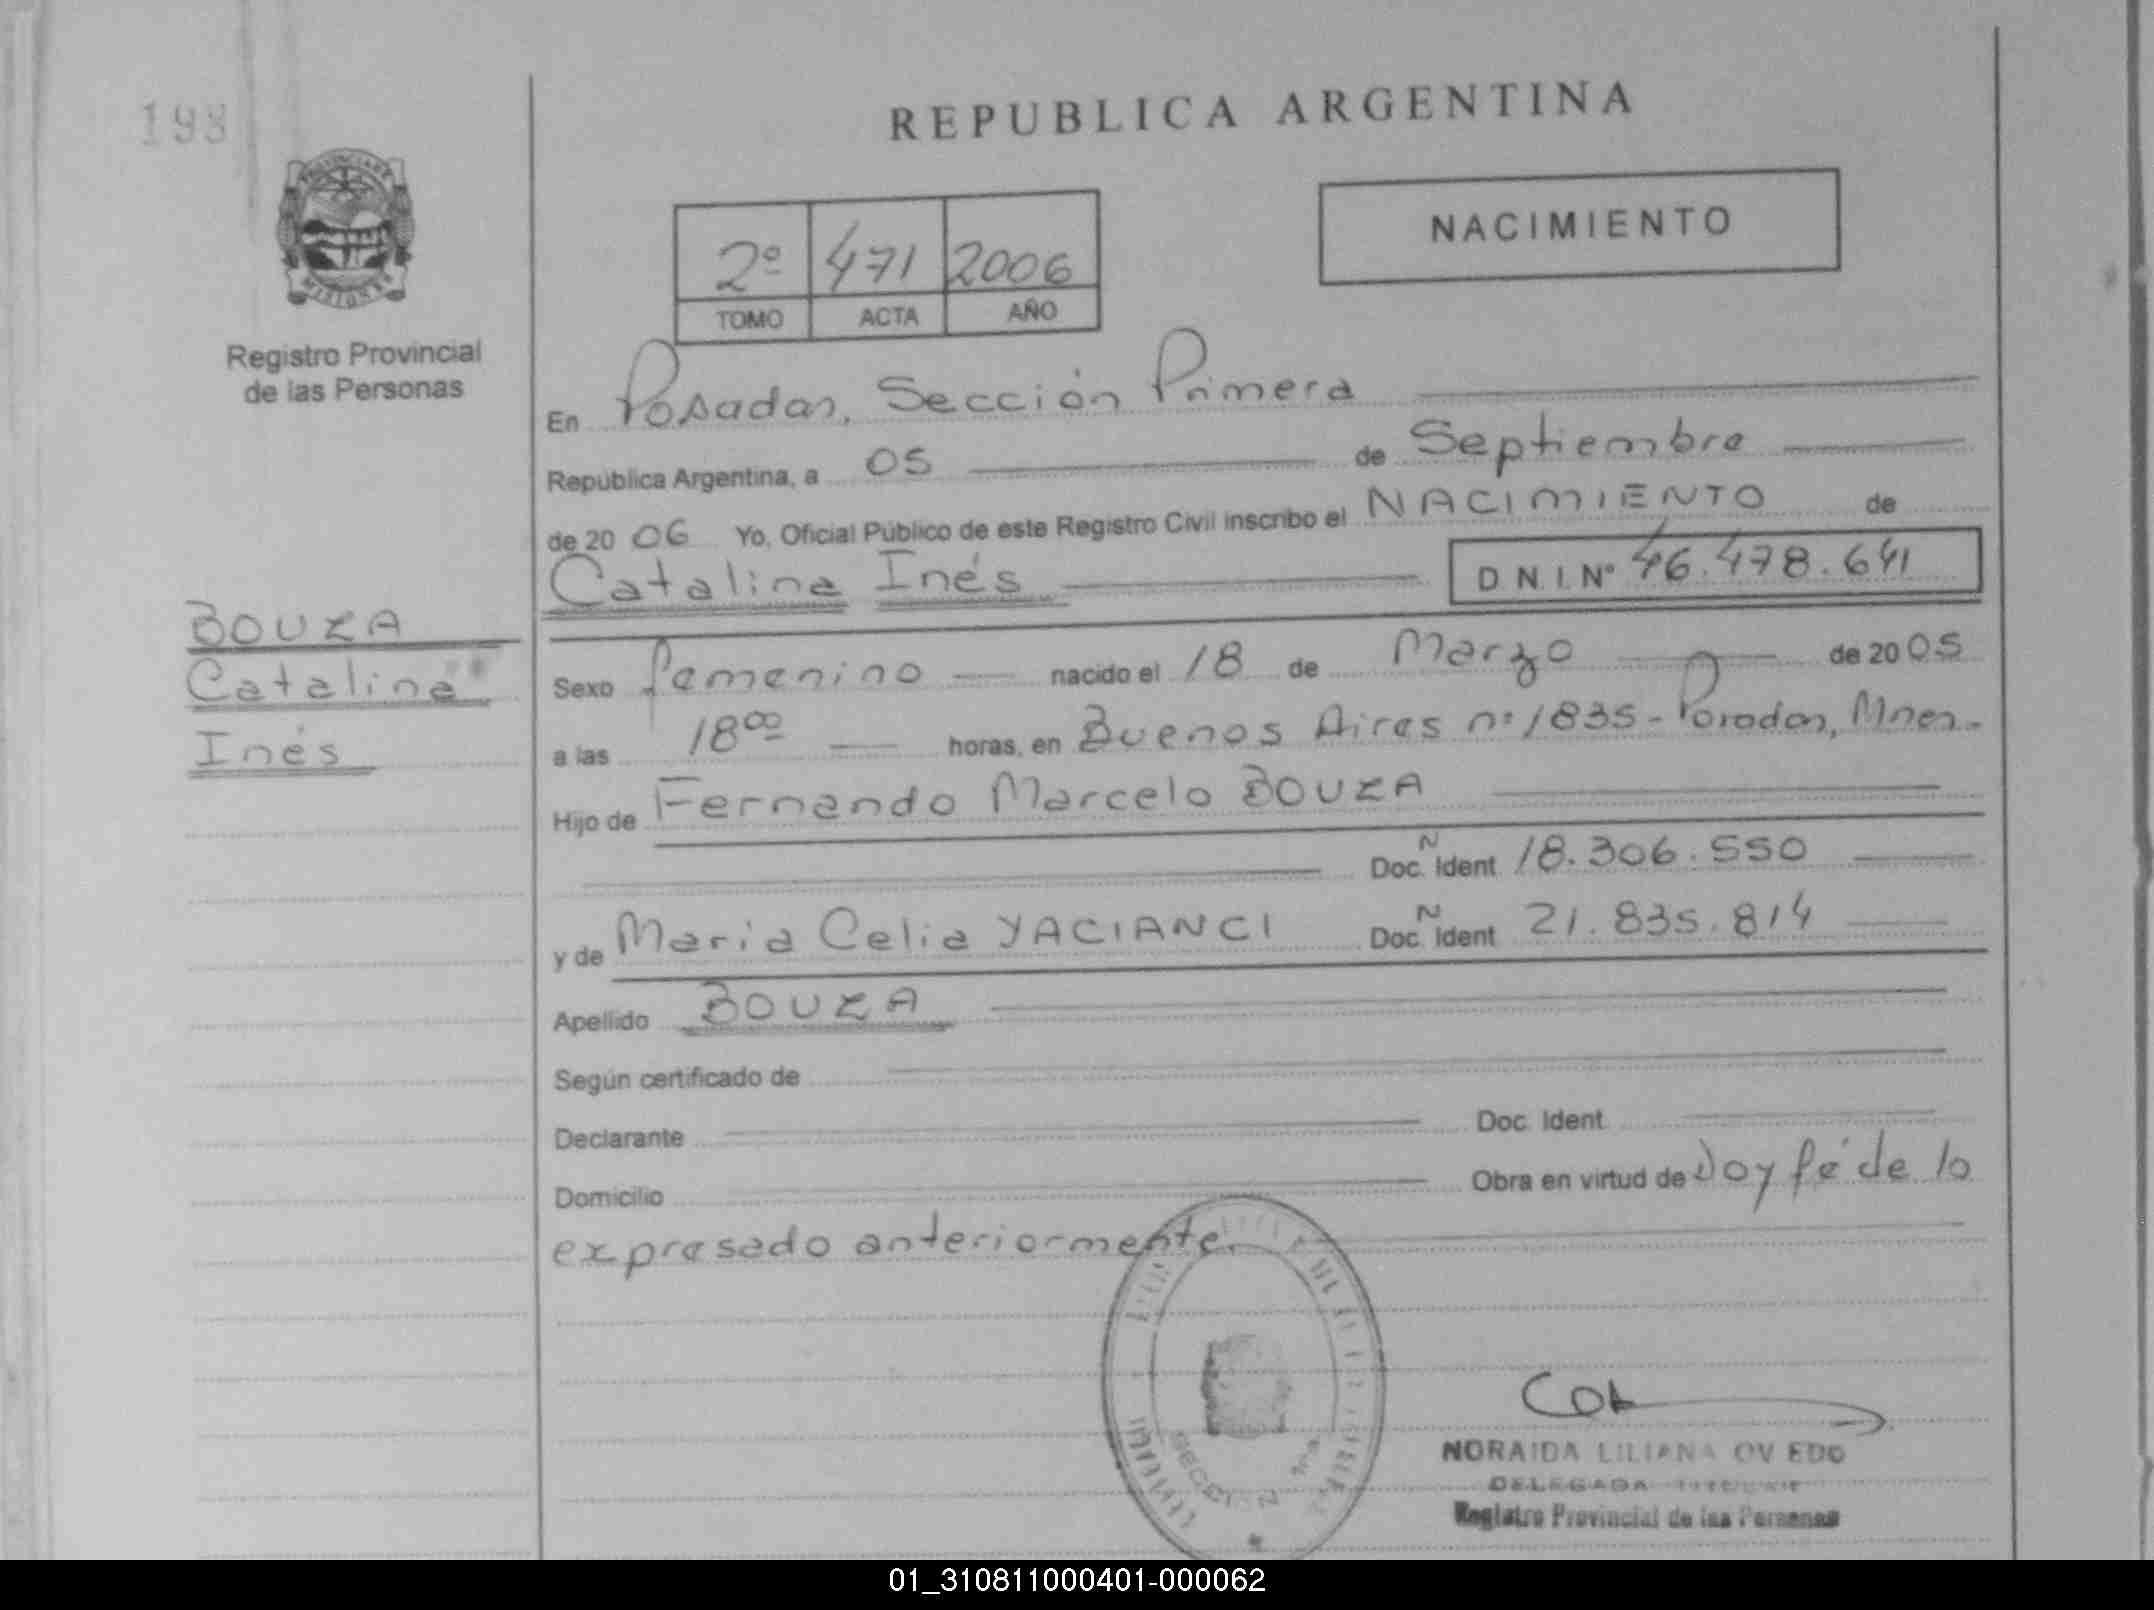 193
REPUBLICA ARGENTINA
NACIMIENTO
2º 471 2006
TOMO ACTA AÑO
PROVINCIA DE
MISIONES
Registro Provincial
de las Personas
En Posadas, Sección Primera
República Argentina, a 05 de Septiembre
de 20 06 Yo, Oficial Público de este Registro Civil inscribo el NACIMIENTO de
Catalina Inés D.N.I.Nº 46.478.641
BOUZA
Catalina
Inés
Sexo femenino nacido el 18 de Marzo de 20 05
a las 18ºº horas, en Buenos Aires nº 1835 - Posadas, Mnes.
Hijo de Fernando Marcelo BOUZA
Doc. Ident 18.306.550
y de Maria Celia YACIANCI Doc. Ident 21.835.814
Apellido BOUZA
Según certificado de
Declarante Doc. Ident
Domicilio Obra en virtud de Doy fé de lo
expresado anteriormente.
SECCION 1ra
NORAIDA LILIANA OVIEDO
DELEGADA
Registro Provincial de las Personas
01_310811000401-000062